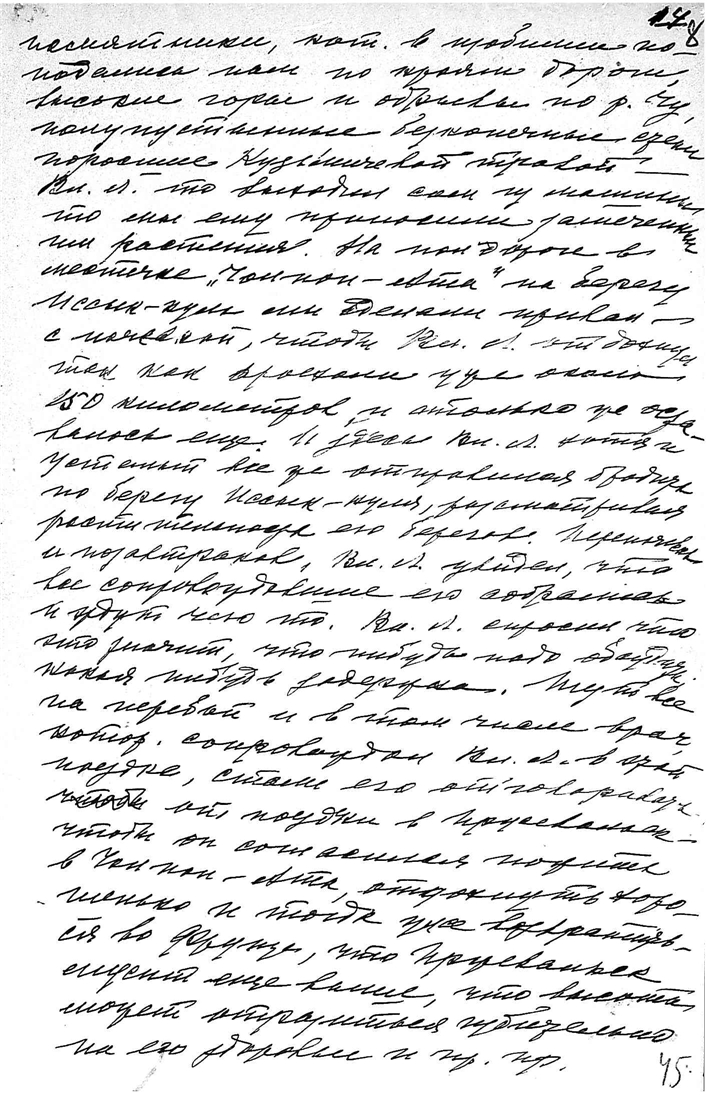 178
памятники, кот. в изобилии по-
подались нам по краям дороги,
высокие горы и обрывы по р. Чу,
полупустынные бесконечные степи
поросшие Кузьмичевой травой —
Вл. Л. то выходил сам из машины
то мы ему приносили замеченные
им растения. На полдороге в
местечке „Чолпон-Ата" на берегу
Иссык-куль мы сделали привал —
с ночевкой, чтобы Вл. Л. отдохнул
так как проехали уже около
150 километров, и столько же оста-
валось еще. И здесь Вл. Л. хотя и
уставший все же отправился бродить
по берегу Иссык-куля, рассматривая
растительность его берегов. Переночевав
и позавтракав, Вл. Л. увидел, что
все сопровождавшие его собрались
и ждут чего то. Вл. Л. спросил что
это значит, что нибудь надо обсудить,
какая нибудь задержка. Тут все
на перебой и в том числе врач,
котор. сопровождал Вл. Л. в этой
поездке, стали его отговаривать
от поездки в Пржевальск —
чтобы он согласился пожить
в Чолпон-Ата, отдохнуть хоро-
шенько и тогда уже возвратить-
ся во Фрунзе, что Пржевальск
лежит еще выше, что высота
может отразиться губительно
на его здоровьи и пр. пр.
45.